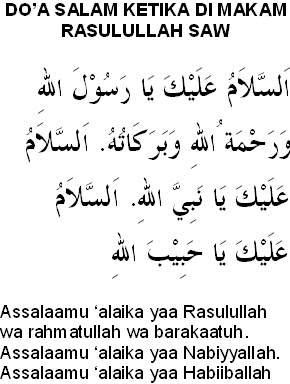 DO’A SALAM KETIKA DI MAKAM
RASULULLAH SAW
اَلسَّلاَمُ عَلَيْكَ يَا رَسُوْلَ اللهِ
وَرَحْمَةُ اللهِ وَبَرَكَاتُهُ. اَلسَّلاَمُ
عَلَيْكَ يَا نَبِيَّ اللهِ. اَلسَّلاَمُ
عَلَيْكَ يَا حَبِيْبَ اللهِ
Assalaamu ‘alaika yaa Rasulullah
wa rahmatullah wa barakaatuh.
Assalaamu ‘alaika yaa Nabiyyallah.
Assalaamu ‘alaika yaa Habiiballah